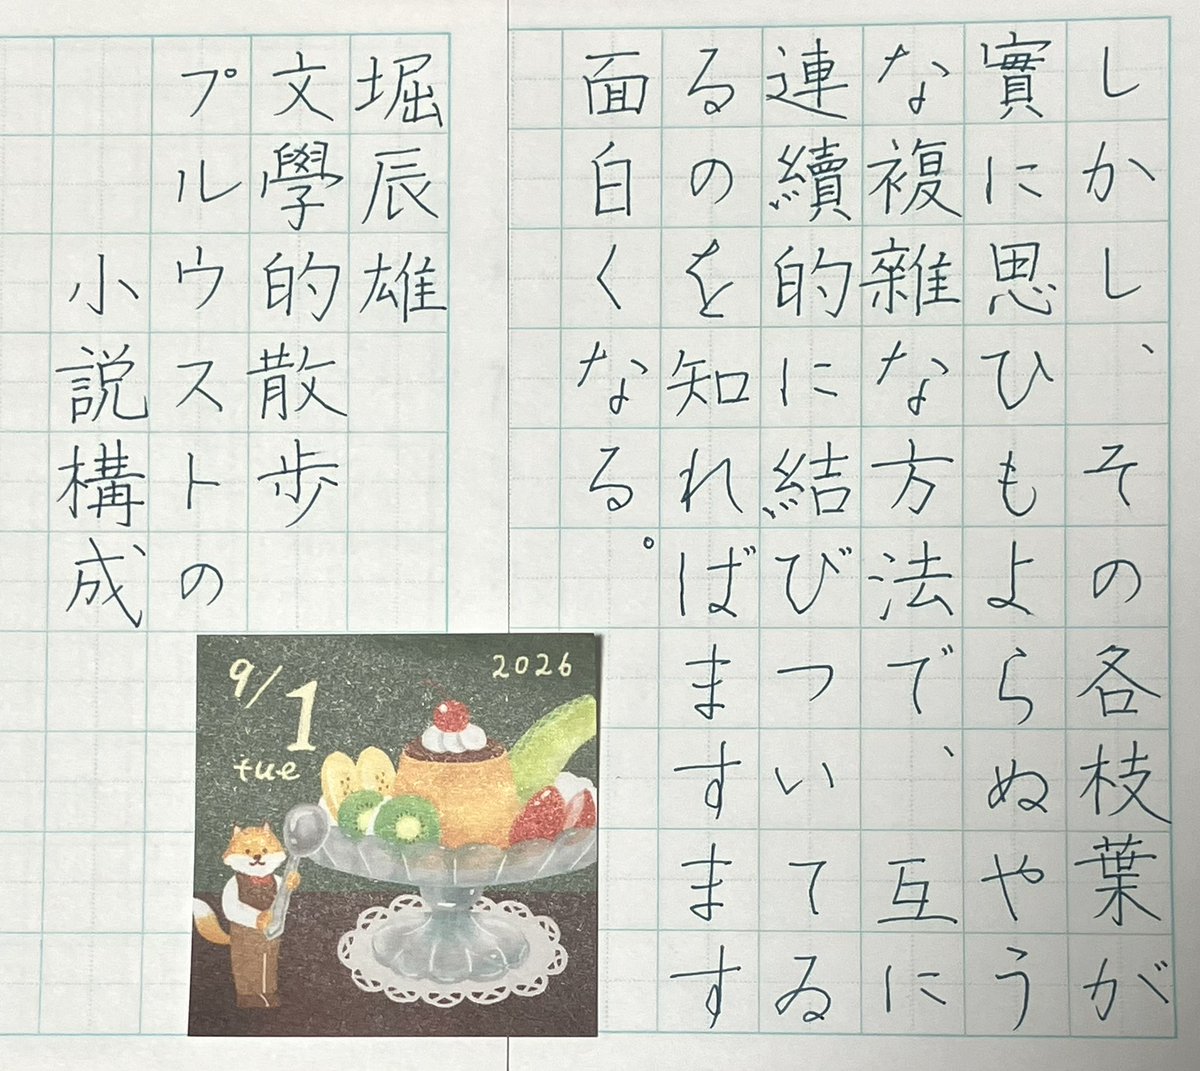 しかし、その各枝葉が
實に思ひもよらぬやう
な複雜な方法で、互に
連續的に結びついてゐ
るのを知ればますます
面白くなる。
堀辰雄
文學的散歩
プルウストの
小説構成
9/1
tue
2026